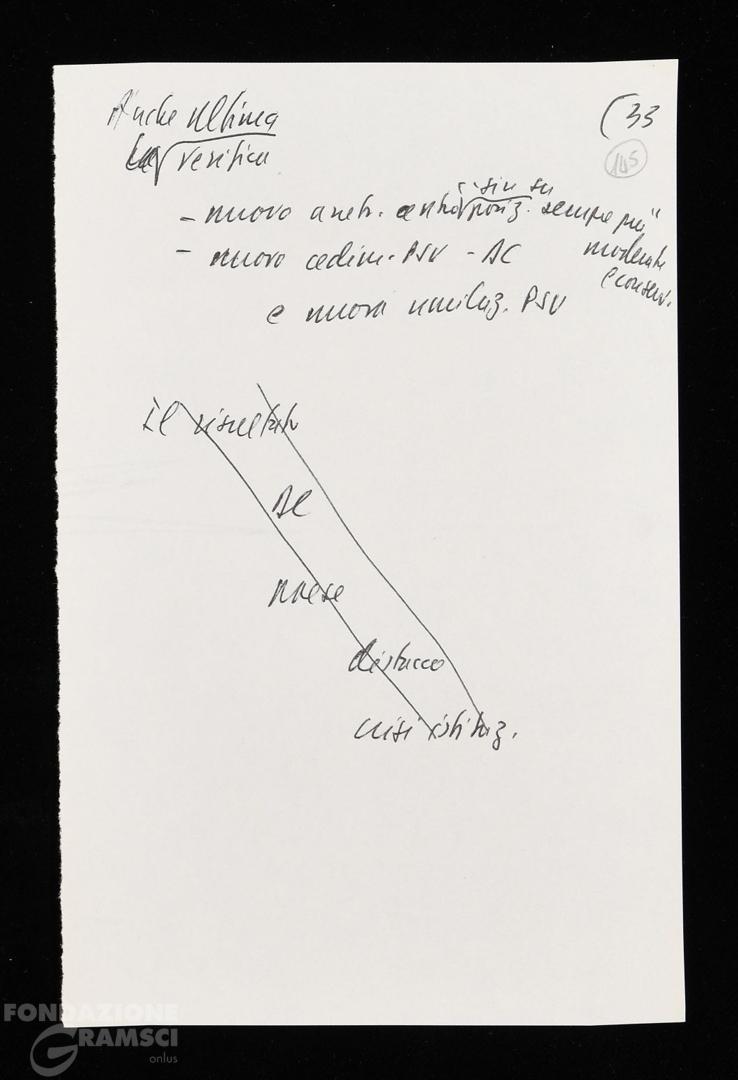 Anche ultima (33
verifica 145
- nuovo arretr. centro sin su
posiz. sempre più
moderate
e conserv.
- nuovo cedim. PSU - DC
e nuova umiliaz. PSU
Il risultato
DC
paese
distacco
crisi istituz.
FONDAZIONE
GRAMSCI
onlus